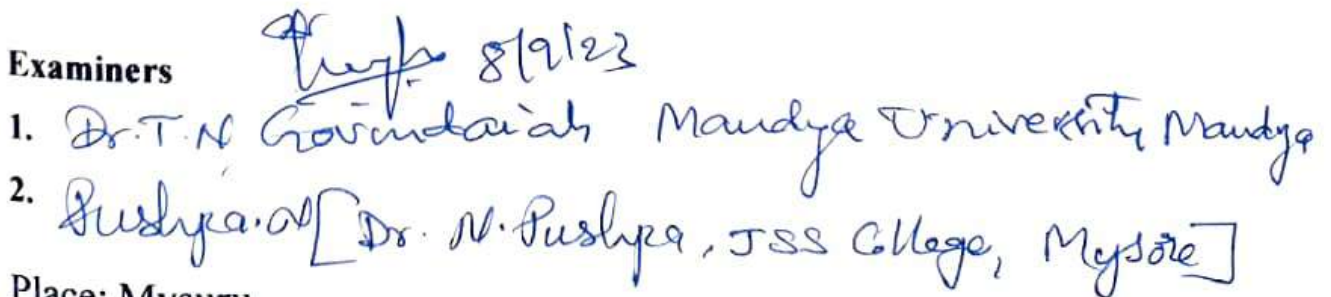 Examiners 8/9/23
1. Dr. T. N Govindaiah Mandya University Mandya
2. Pushpa. N [Dr. N. Pushpa, JSS College, Mysore]
Place: Mysuru